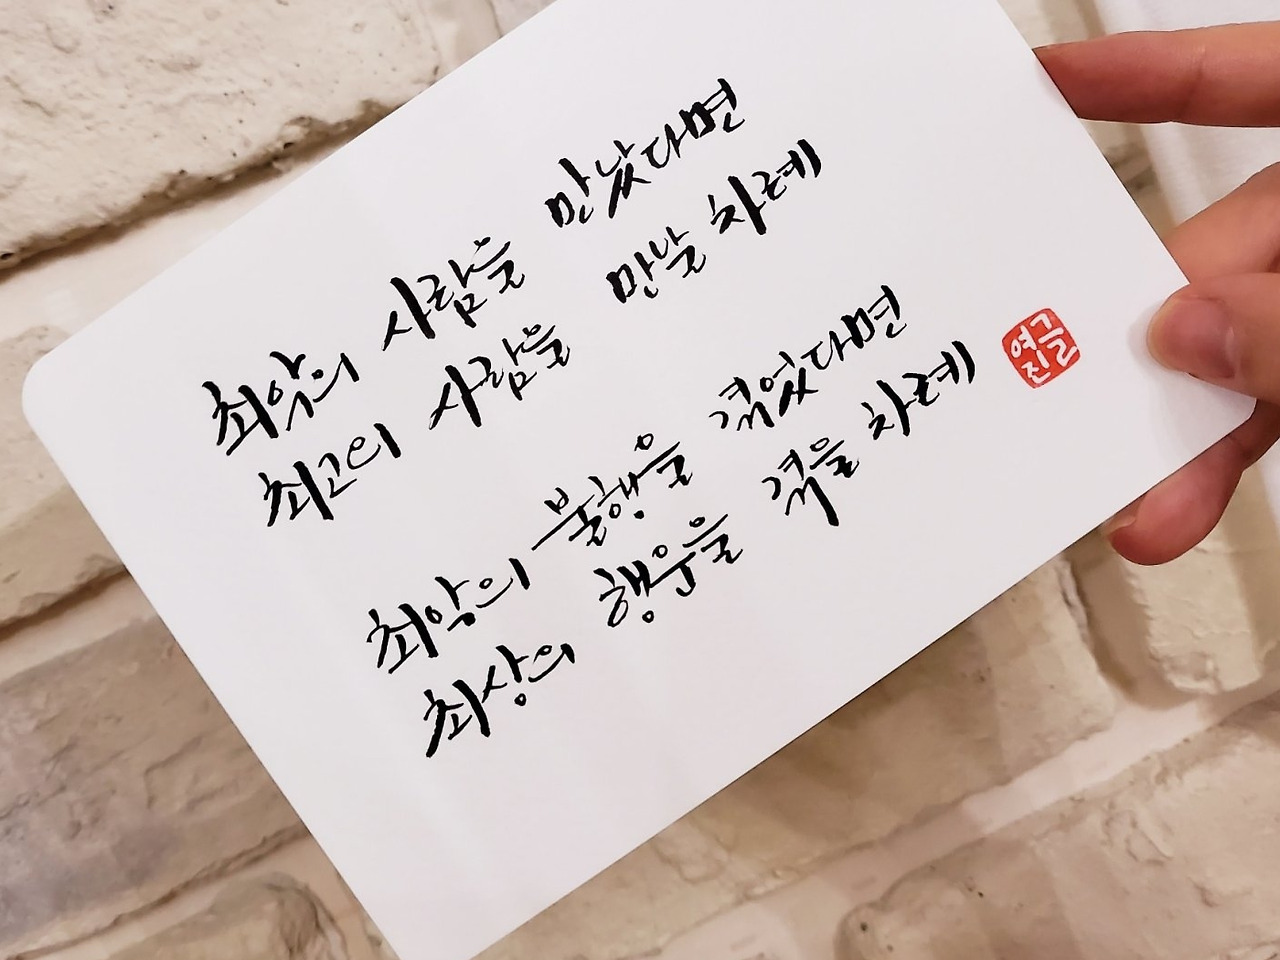 최악의 사람을 만났다면
최고의 사람을 만날 차례
최악의 불행을 겪었다면
최상의 행운을 겪을 차례
여진글